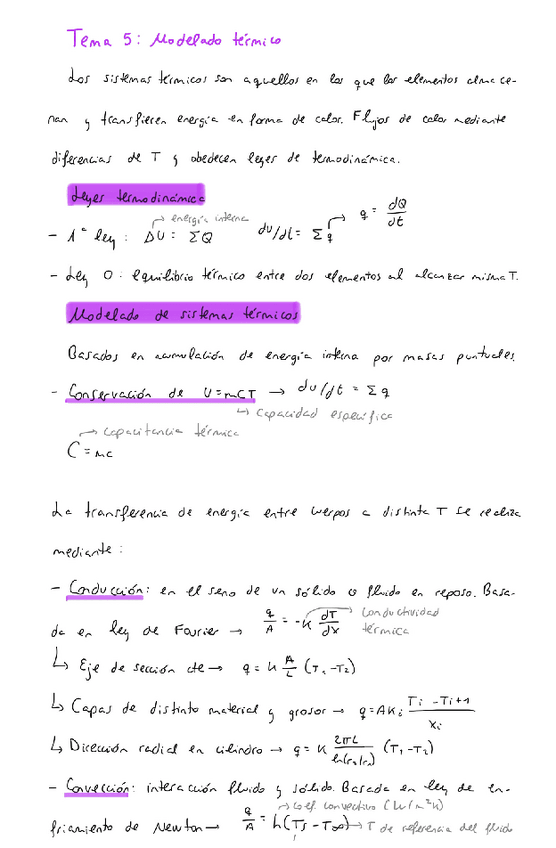 Tema 5: Modelado térmico
Los sistemas térmicos son aquellos en los que los elementos almace-
nan y transfieren energía en forma de calor. Flujos de calor mediante
diferencias de T y obedecen leyes de termodinámica.
Leyes termodinámica
→ energía interna
- 1ª ley: ΔU = ΣQ dU/dt = Σq → q = dQ/dt
- Ley 0: equilibrio térmico entre dos elementos al alcanzar misma T.
Modelado de sistemas térmicos
Basados en acumulación de energía interna por masas puntuales.
- Conservación de U=mCT → dU/dt = Σq
↳ capacidad específica
→ capacitancia térmica
C = mc
La transferencia de energía entre cuerpos a distinta T se realiza
mediante:
- Conducción: en el seno de un sólido o fluido en reposo. Basa-
da en ley de Fourier → q/A = -K dT/dx conductividad térmica
↳ Eje de sección cte → q = K A/L (T₁-T₂)
↳ Capas de distinto material y grosor → q=AKi (Ti - Ti+1)/xi
↳ Dirección radial en cilindro → q = K 2πL/ln(r₂/r₁) (T₁-T₂)
- Convección: interacción fluido y sólido. Basada en ley de en-
→ coef. convectivo (W/m²K)
friamiento de Newton → q/A = h(Ts - T∞) → T de referencia del fluido